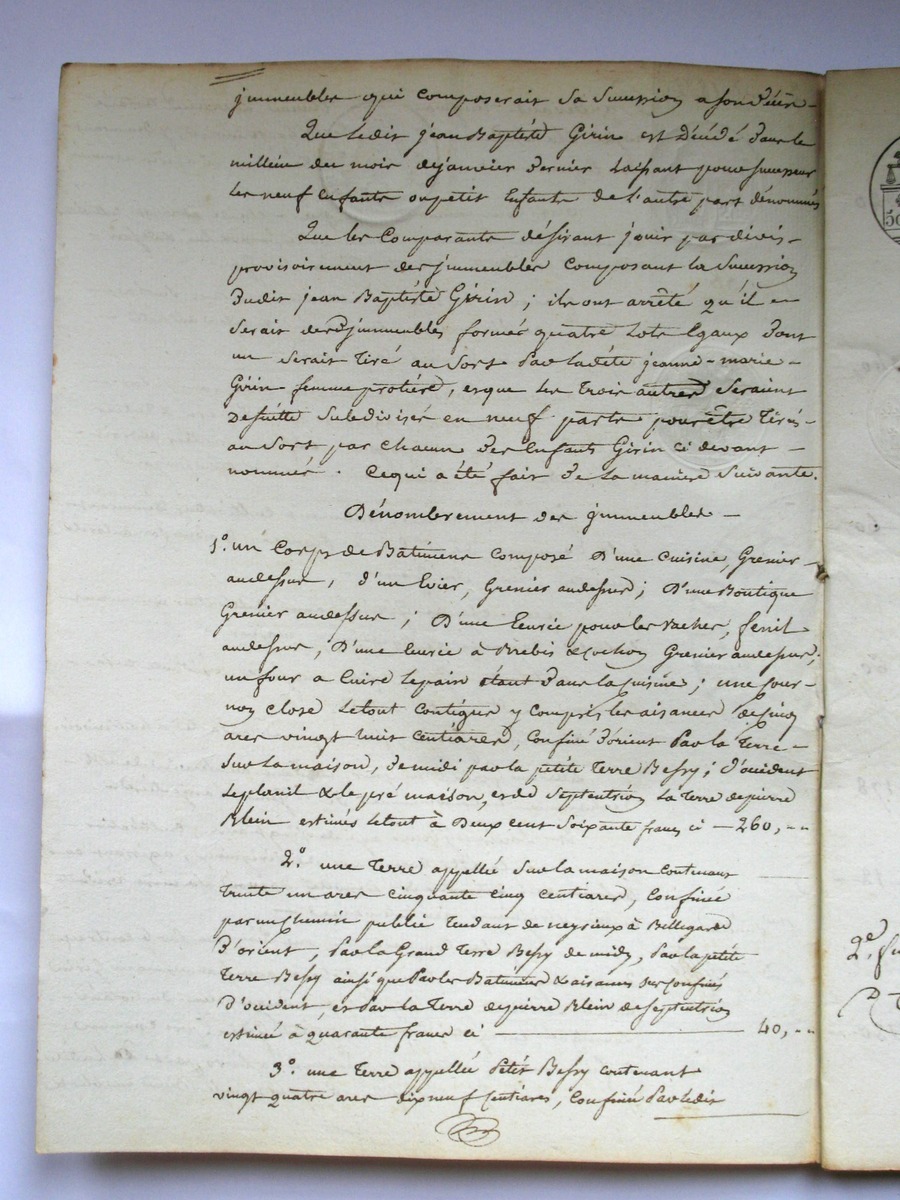 jmmeubles qui composerait sa succession a son décès -
Que ledit jean Baptiste Girin est décédé dans le
millieu du mois dejanvier dernier laissant pour successeurs
les neuf enfants ou petit Enfants de l'autre part dénommés
Que les Comparants désirant jouir par divis -
provisoirement des jmmeubles composant la succession
dudit jean Baptiste Girin ; ils ont arrêté qu'il en
serait desdts jmmeubles formé quatre lots Egaux dont
un serait tiré au sort par ladite jeanne-marie -
Girin femme protière, et que les trois autres seraient
desuitte subdivisés en neuf parts pour être tirés -
au sort par chacun des Enfants Girin ci devant -
nommés . Cequi a été fait de la maniere suivante.
Dénombrement des jmmeubles -
1°. un Corps de Batiment composé d'une cuisine, Grenier
audessus, d'un Evier, Grenier audessus ; d'une Boutique
Grenier audessus ; d'une Ecurie pour les vaches, fenil
audessus, d'une Ecurie à Brebis & cochon Grenier audessus ;
un four a cuire lepain étant dans la cuisine ; une cour -
non close letout contigue y compris les aisances de cinq
ares vingt huit centiares, Confiné d'orient par la terre -
sur la maison, de midi par la petite terre Bessy ; d'occident
le planil & le pré maison, et de septentrion la terre depierre
Blein estimés letout à deux cent soixante francs ci - 260, --
2°. une terre appellée sur la maison contenant
trente un ares cinquante cinq centiares, Confinée
par un Chemin public tendant de neyrieux à Bellegarde
d'orient, par la Grand terre Bessy de midy, par la petite
terre Bessy ainsi que par les Batiments & aisances sus confinés
d'occident, et par la terre depierre Blein de septentrion
estimée à quarante francs ci 40, --
3°. une terre appellée Petit Bessy contenant
vingt quatre ares dix neuf centiares, Confinée par ledit
50
2e. fu